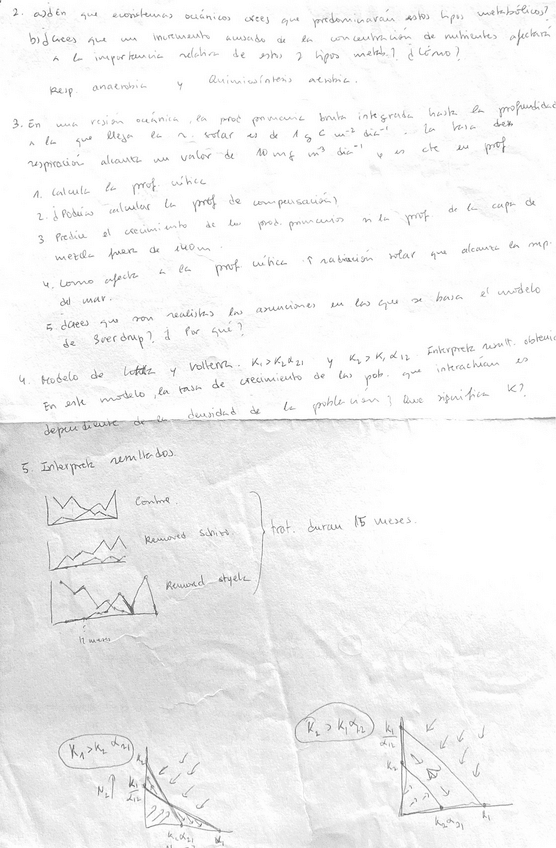 2. a) ¿En que ecosistemas oceánicos crees que predominarán estos tipos metabólicos?
b) ¿Crees que un incremento acusado de la concentración de nutrientes afectará
a la importancia relativa de estos 2 tipos metab.? ¿Cómo?
Resp. anaerobia y Quimiosíntesis aerobia.
3. En una región oceánica, la prod primaria bruta integrada hasta la profundidad
a la que llega la r. solar es de 1 g C m⁻² dia⁻¹. La tasa de
respiración alcanza un valor de 10 mg m³ dia⁻¹ y es cte en prof
1. Calcula la prof crítica
2. ¿Podrías calcular la prof de compensación?
3 Predice el crecimiento de los prod. primarios si la prof. de la capa de
mezcla fuera de 140 m.
4. Como afecta a la prof crítica ↑ radiación solar que alcanza la sup.
del mar.
5. ¿Crees que son realistas las asunciones en las que se basa el modelo
de Sverdrup? ¿Por qué?
4. Modelo de Lotka y Volterra. K₁ > K₂ α₂₁ y K₂ > K₁ α₁₂ Interpreta result. obtenidos
En este modelo, la tasa de crecimiento de las pob. que interactúan es
dependiente de la densidad de la población? Que significa K?
5. Interpreta resultados.
Control
Removed Schizo
Removed styela
trat. duran 15 meses.
K₁ > K₂ α₂₁
K₂
N₂ ↑
K₁/α₁₂
K₂ α₂₁
K₁
K₂ > K₁ α₁₂
K₁/α₁₂
K₂
K₂ α₂₁
K₁